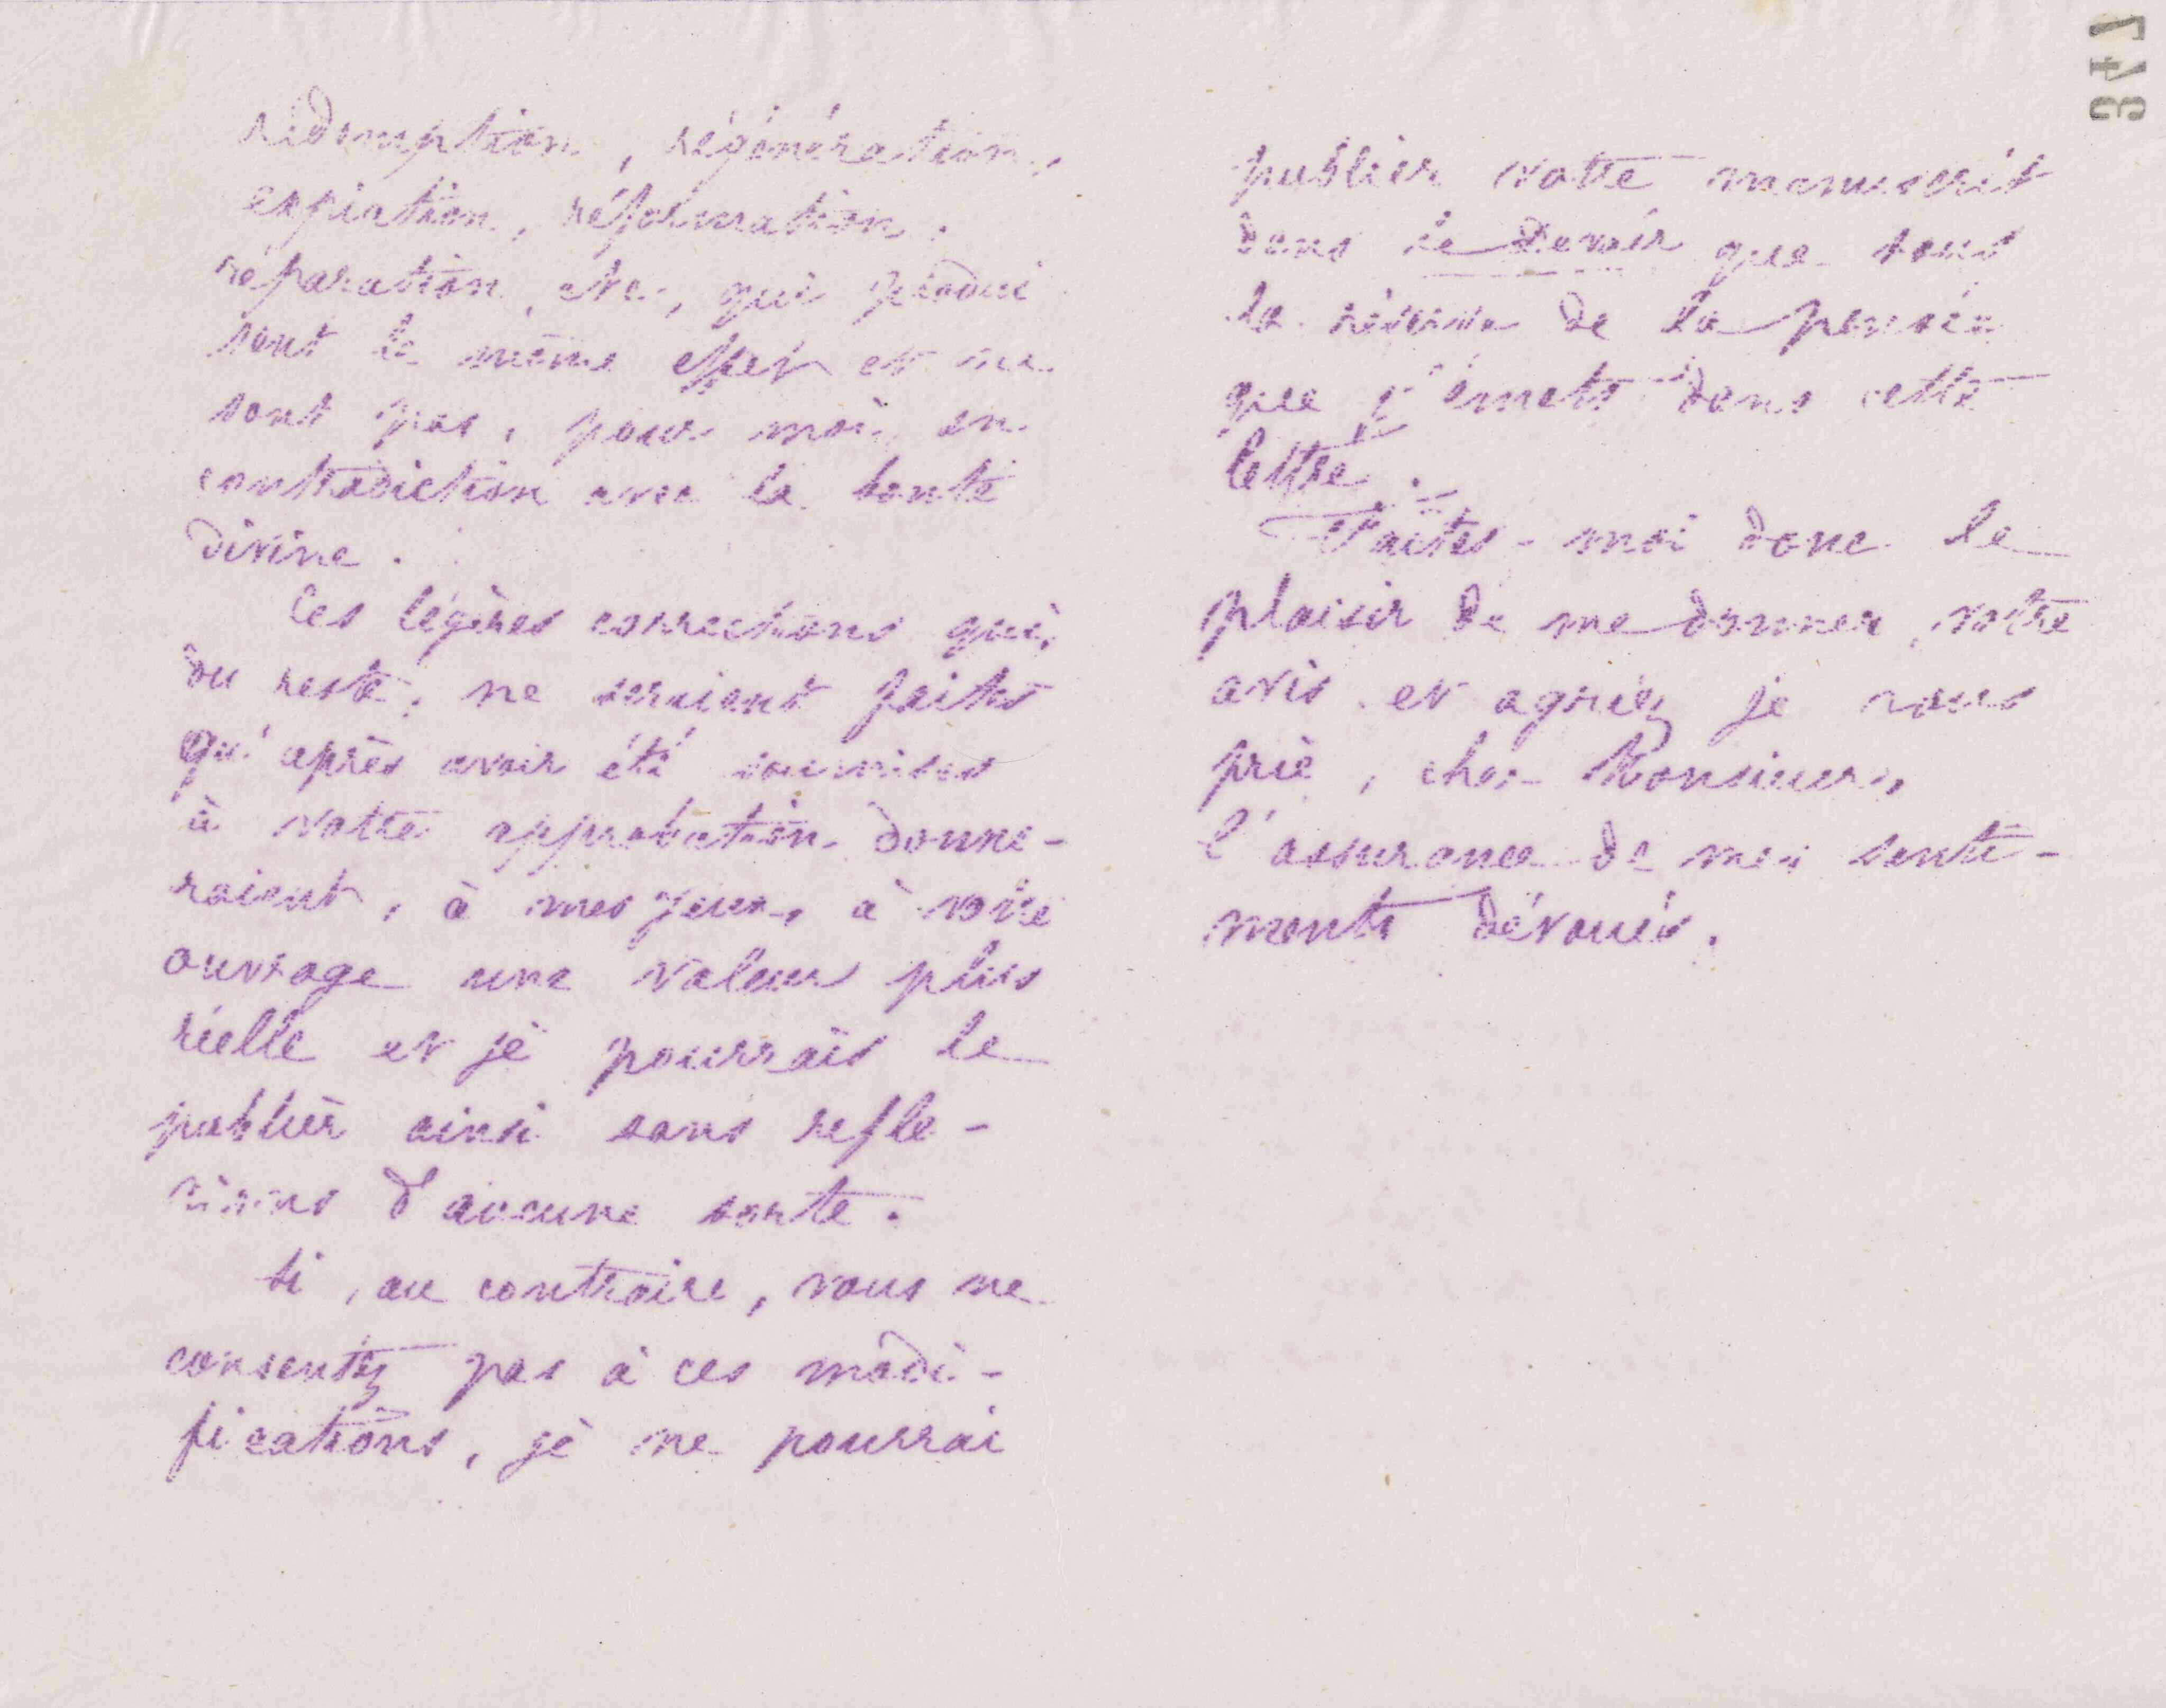 rédemption, régénération,
expiation, réformation,
réparation, etc., qui produi
sent le même effet et ne
sont pas, pour moi, en
contradiction avec la bonté
divine.
Ces légères corrections qui,
du reste, ne seraient faites
qu'après avoir été soumises
à votre approbation donne-
raient, à mes yeux, à votre
ouvrage une valeur plus
réelle et je pourrais le
publier ainsi sans refle-
xions d'aucune sorte.
Si, au contraire, vous ne
consentez pas à ces modi-
fications, je ne pourrai
347
publier votre manuscrit
dans le Devoir que sous
la réserve de la pensée
que j'émets dans cette
lettre.
Faites-moi donc le
plaisir de me donner votre
avis et agréez je vous
prie, cher Monsieur,
l'assurance de mes senti-
ments dévoués.